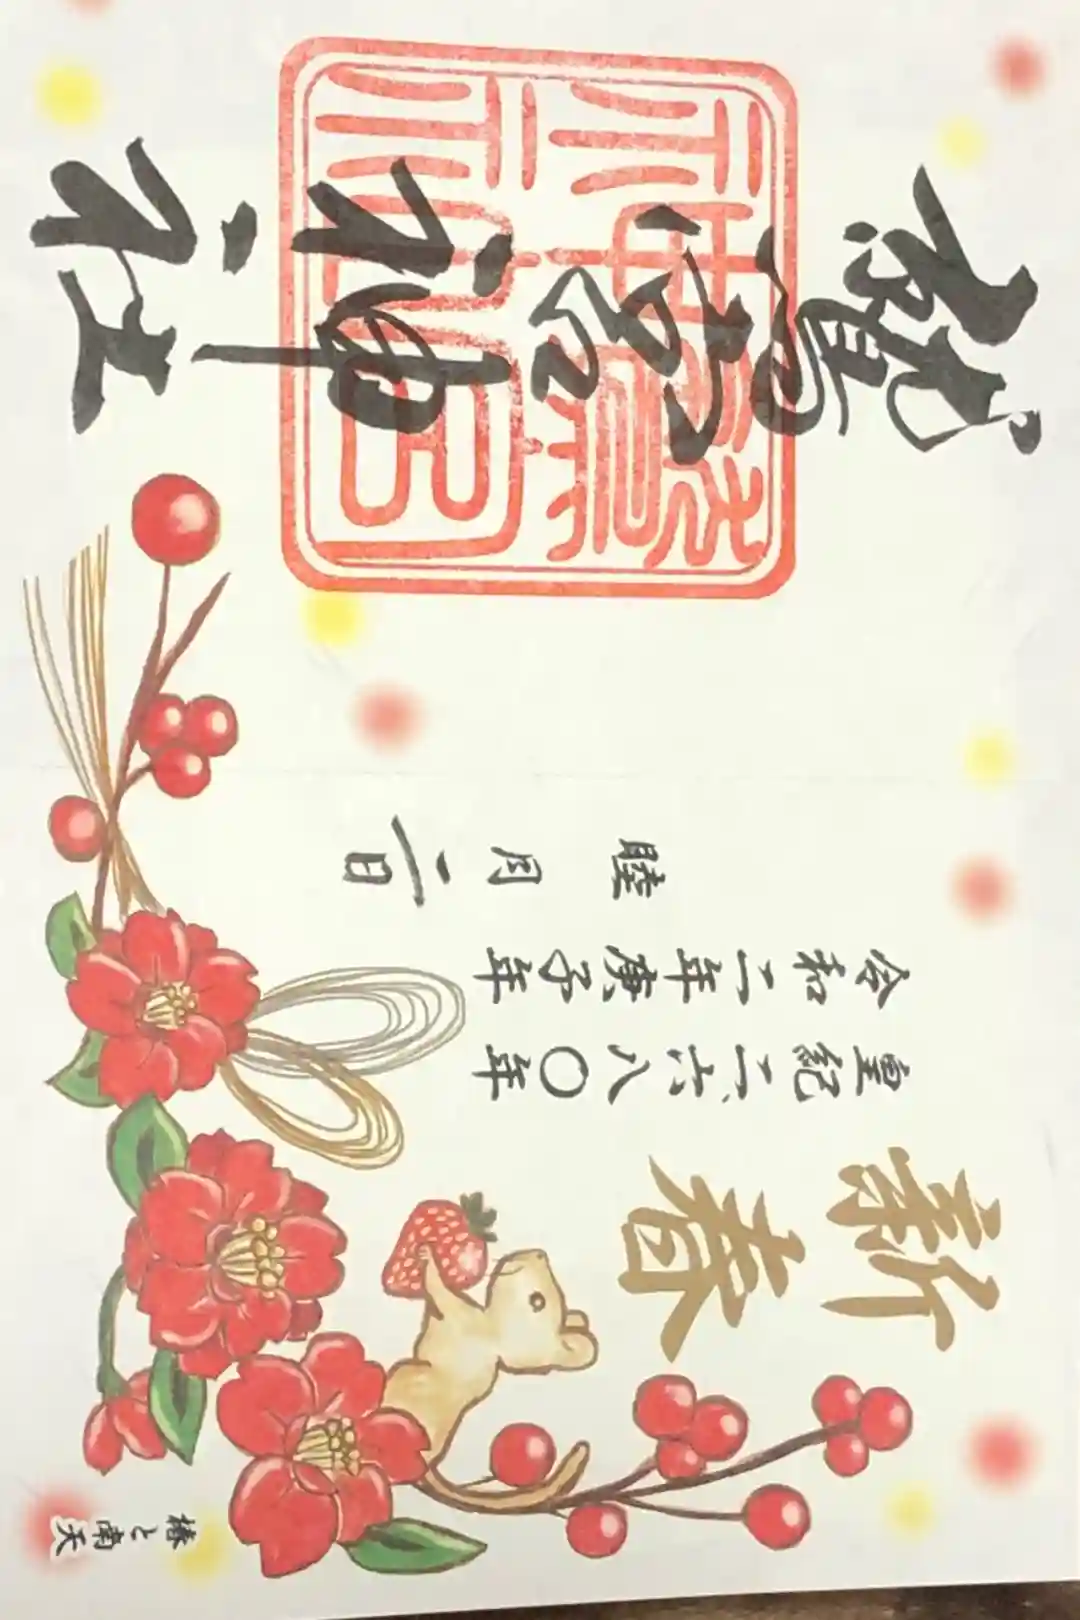 新春
皇紀二六八〇年
令和二年庚子年
睦月二日
鷲宮神社
椿と南天